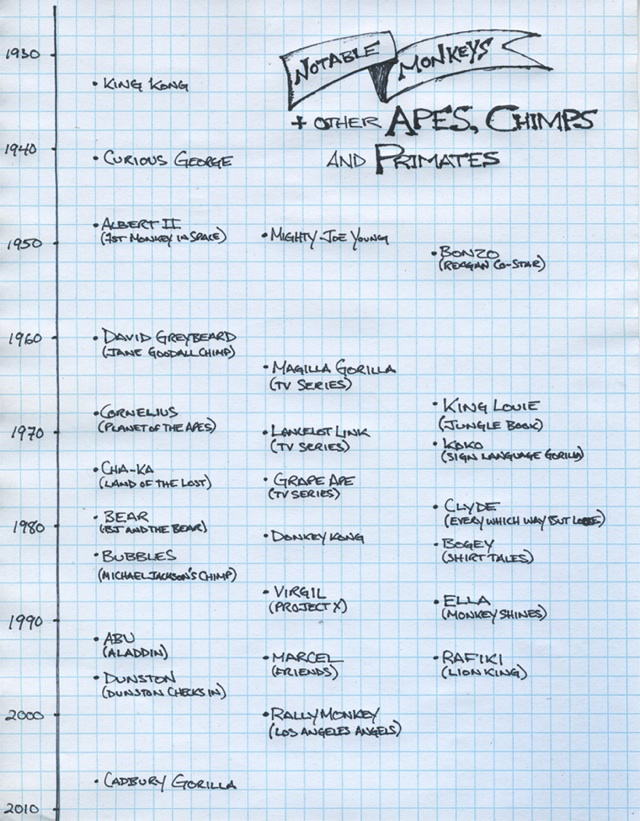 NOTABLE MONKEYS
+ OTHER APES, CHIMPS
AND PRIMATES
1930
• KING KONG
1940
• CURIOUS GEORGE
• ALBERT II
(1ST MONKEY IN SPACE)
• MIGHTY JOE YOUNG
1950
• BONZO
(REAGAN CO-STAR)
1960
• DAVID GREYBEARD
(JANE GOODALL CHIMP)
• MAGILLA GORILLA
(TV SERIES)
• CORNELIUS
(PLANET OF THE APES)
• KING LOUIE
(JUNGLE BOOK)
1970
• LANCELOT LINK
(TV SERIES)
• KOKO
(SIGN LANGUAGE GORILLA)
• CHA-KA
(LAND OF THE LOST)
• GRAPE APE
(TV SERIES)
• CLYDE
(EVERY WHICH WAY BUT LOOSE)
1980
• BEAR
(BJ AND THE BEAR)
• DONKEY KONG
• BOGEY
(SHIRT TALES)
• BUBBLES
(MICHAEL JACKSON'S CHIMP)
• VIRGIL
(PROJECT X)
• ELLA
(MONKEY SHINES)
1990
• ABU
(ALADDIN)
• MARCEL
(FRIENDS)
• RAFIKI
(LION KING)
• DUNSTON
(DUNSTON CHECKS IN)
2000
• RALLY MONKEY
(LOS ANGELES ANGELS)
• CADBURY GORILLA
2010